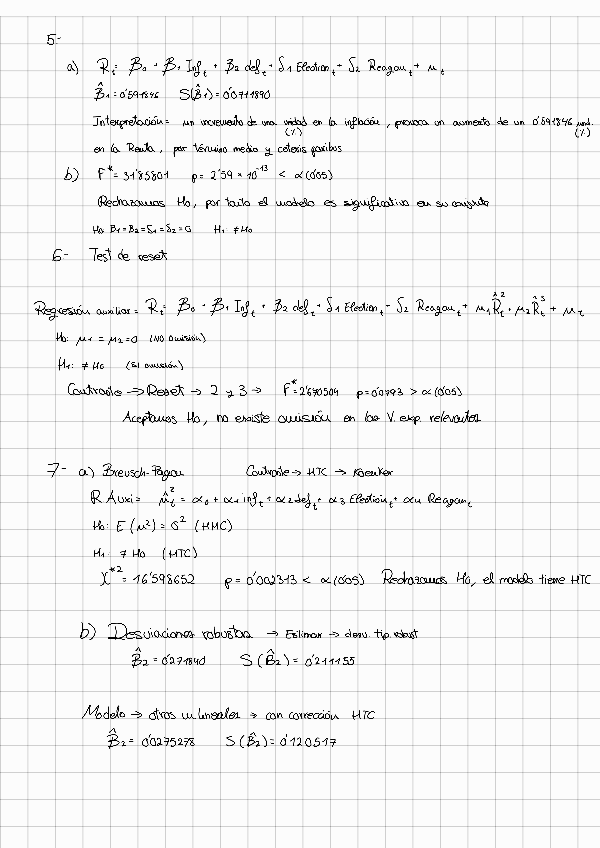 5-
a) R_t = β₀ + β₁ Inf_t + β₂ def_t + δ₁ Election_t + δ₂ Reagan_t + μ_t
β̂₁ = 0'591846 S(β̂₁) = 0'0711890
Interpretación = un incremento de una unidad en la inflación, provoca un aumento de un 0'591846 und.
(%) (%)
en la Renta, por término medio y ceteris paribus
b) F* = 31'85801 p = 2'59 × 10⁻¹³ < α (0'05)
Rechazamos H₀, por tanto el modelo es significativo en su conjunto
H₀ β₁ = β₂ = δ₁ = δ₂ = 0 H₁ ≠ H₀
6- Test de reset
Regresión auxiliar = R_t = β₀ + β₁ Inf_t + β₂ def_t + δ₁ Election_t + δ₂ Reagan_t + μ₁ R̂_t² + μ₂ R̂_t³ + μ_t
H₀: μ₁ = μ₂ = 0 (NO omisión)
H₁: ≠ H₀ (SI omisión)
Contraste → Reset → 2 y 3 → F* = 2'670504 p = 0'0793 > α (0'05)
Aceptamos H₀, no existe omisión en las V. exp. relevantes
7- a) Breusch-Pagan Contraste → HTC → Koenker
R Auxi = μ̂_t² = α₀ + α₁ inf_t + α₂ def_t + α₃ Election_t + α₄ Reagan_t
H₀: E(μ²) = σ² (HMC)
H₁ ≠ H₀ (HTC)
χ*² = 16'598652 p = 0'002313 < α (0'05) Rechazamos H₀, el modelo tiene HTC
b) Desviaciones robustas → Estimar → desv. tip. robust
β̂₂ = 0'271840 S(β̂₂) = 0'211155
Modelo → otros m/lineales → con corrección HTC
β̂₂ = 0'0275278 S(β̂₂) = 0'120517